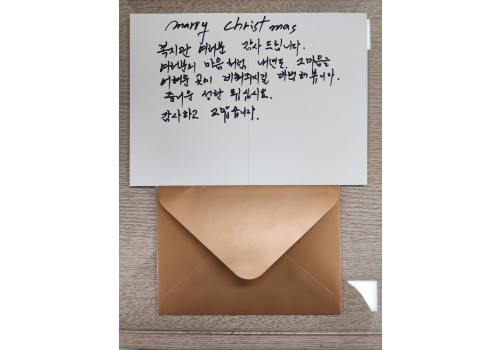 marry christmas
복지관 여러분 감사 드립니다.
여러분의 마음처럼 내년도 그마음을
어려운 곳에 비춰주시길 바래봅니다.
즐거운 성탄 되십시요.
감사하고 고맙습니다.